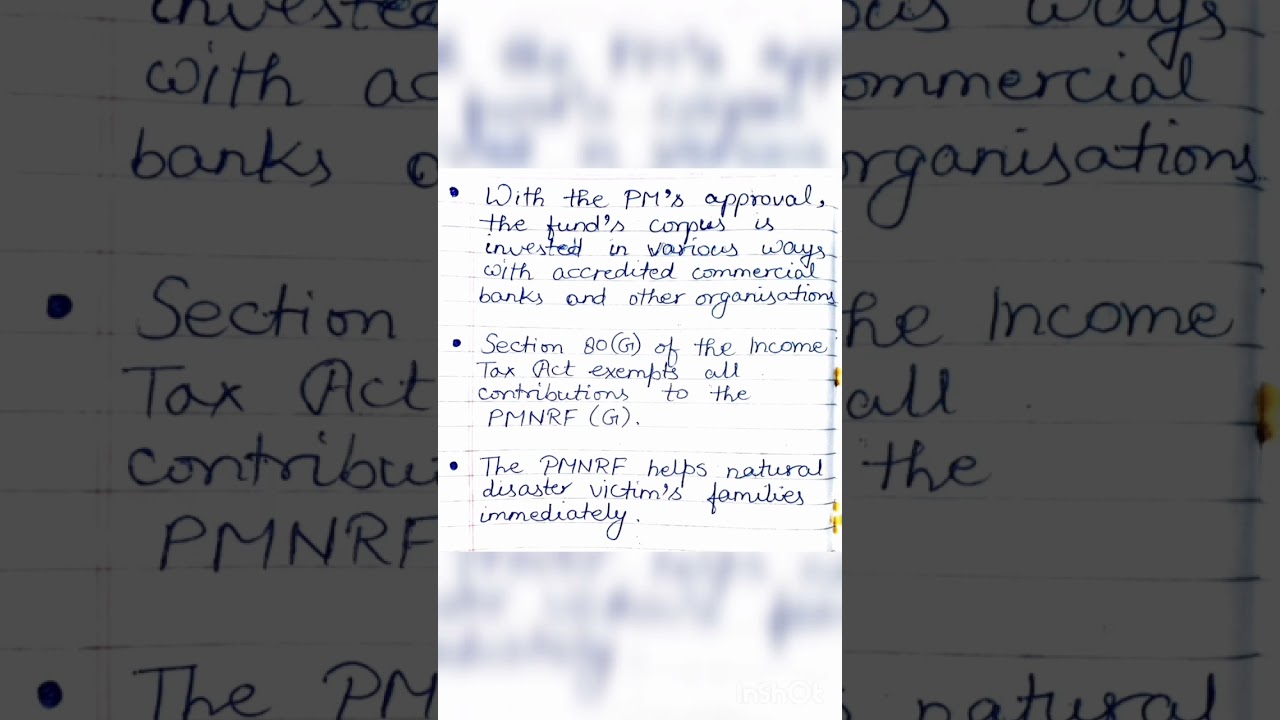 • With the PM's approval,
the fund's corpus is
invested in various ways
with accredited commercial
banks and other organisations
• Section 80(G) of the Income
Tax Act exempts all
contributions to the
PMNRF (G).
• The PMNRF helps natural
disaster victim's families
immediately.
InShOt